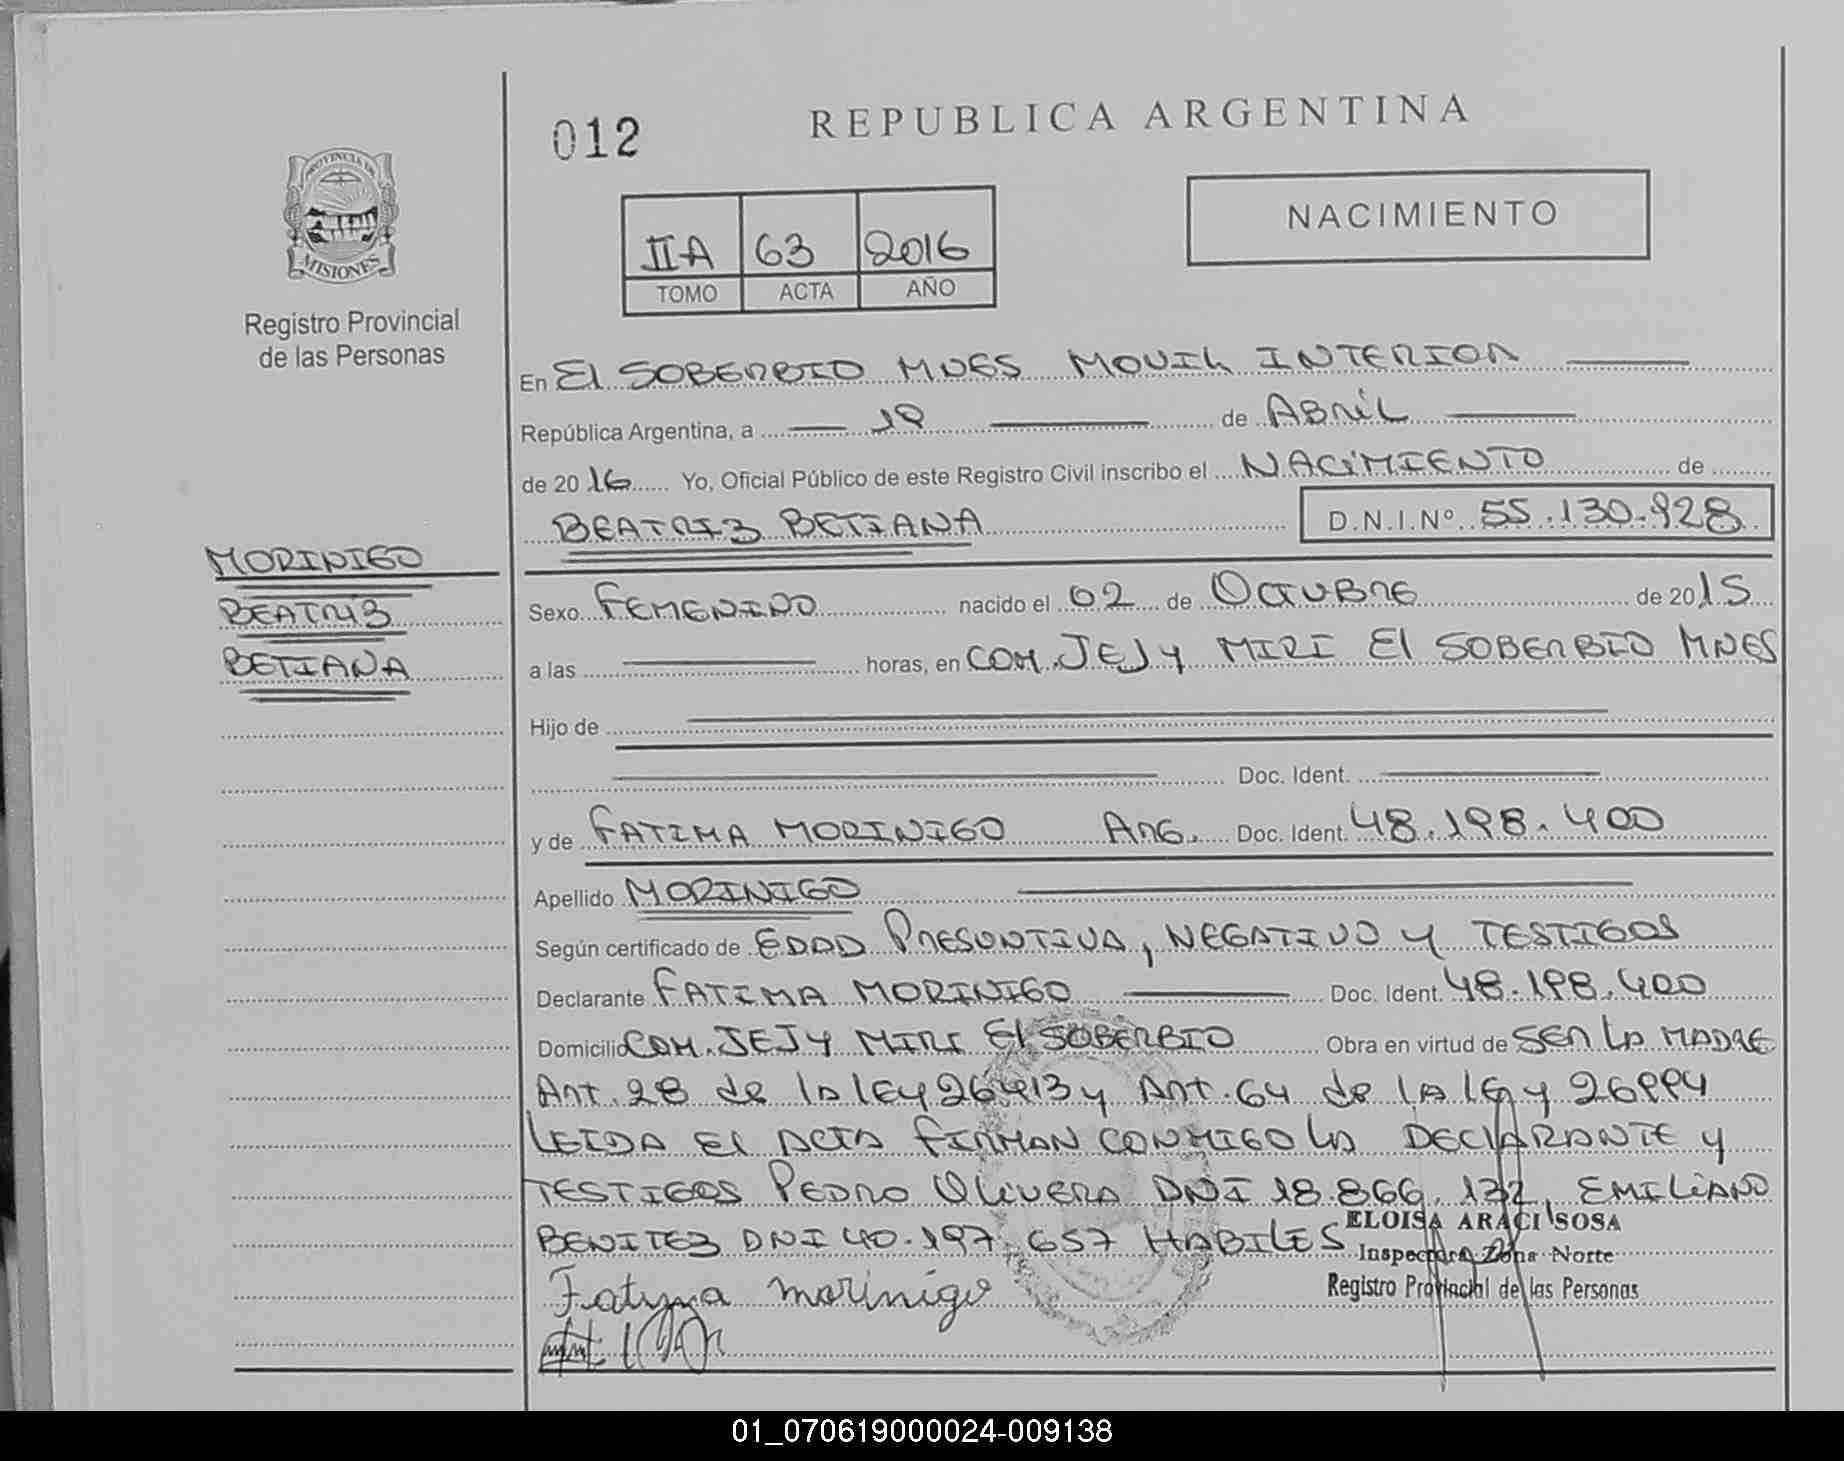 012
REPUBLICA ARGENTINA
PROVINCIA DE
MISIONES
Registro Provincial
de las Personas
IIA 63 2016
TOMO ACTA AÑO
NACIMIENTO
En El SOBERBIO MNES MOVIL INTERIOR
República Argentina, a 19 de ABRIL
de 2016 Yo, Oficial Público de este Registro Civil inscribo el NACIMIENTO de
BEATRIZ BETIANA D.N.I.Nº 55.130.928
MORINIGO
BEATRIZ
BETIANA
Sexo FEMENINO nacido el 02 de OCTUBRE de 2015
a las horas, en COM. JEJY MIRI El SOBERBIO MNES
Hijo de
Doc. Ident.
y de FATIMA MORINIGO ARG. Doc. Ident. 48.198.400
Apellido MORINIGO
Según certificado de EDAD PRESUNTIVA, NEGATIVO y TESTIGOS
Declarante FATIMA MORINIGO Doc. Ident. 48.198.400
Domicilio COM. JEJY MIRI El SOBERBIO Obra en virtud de SER LA MADRE
ART. 28 de la LEY 26413 y ART. 64 de la LEY 26994
LEIDA El ACTA FIRMAN CONMIGO LA DECLARANTE y
TESTIGOS PEDRO OLIVERA DNI 18.866.132, EMILIANO
BENITEZ DNI 40.197.657 HABILES
ELOISA ARACI SOSA
Inspectora Zona Norte
Registro Provincial de las Personas
Fatyma morinigo
01_070619000024-009138